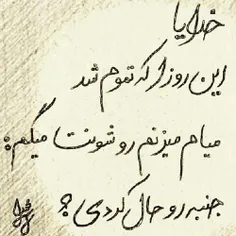 خدایا
این روزا که تموم شد
میام میزنم رو شونت میگم:
جنبه رو حال کردی؟